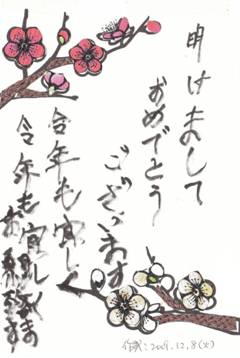 明けまして
おめでとう
ございます
今年も宜しく
今年も宜しく
お願
作成:2009.12.8(火)